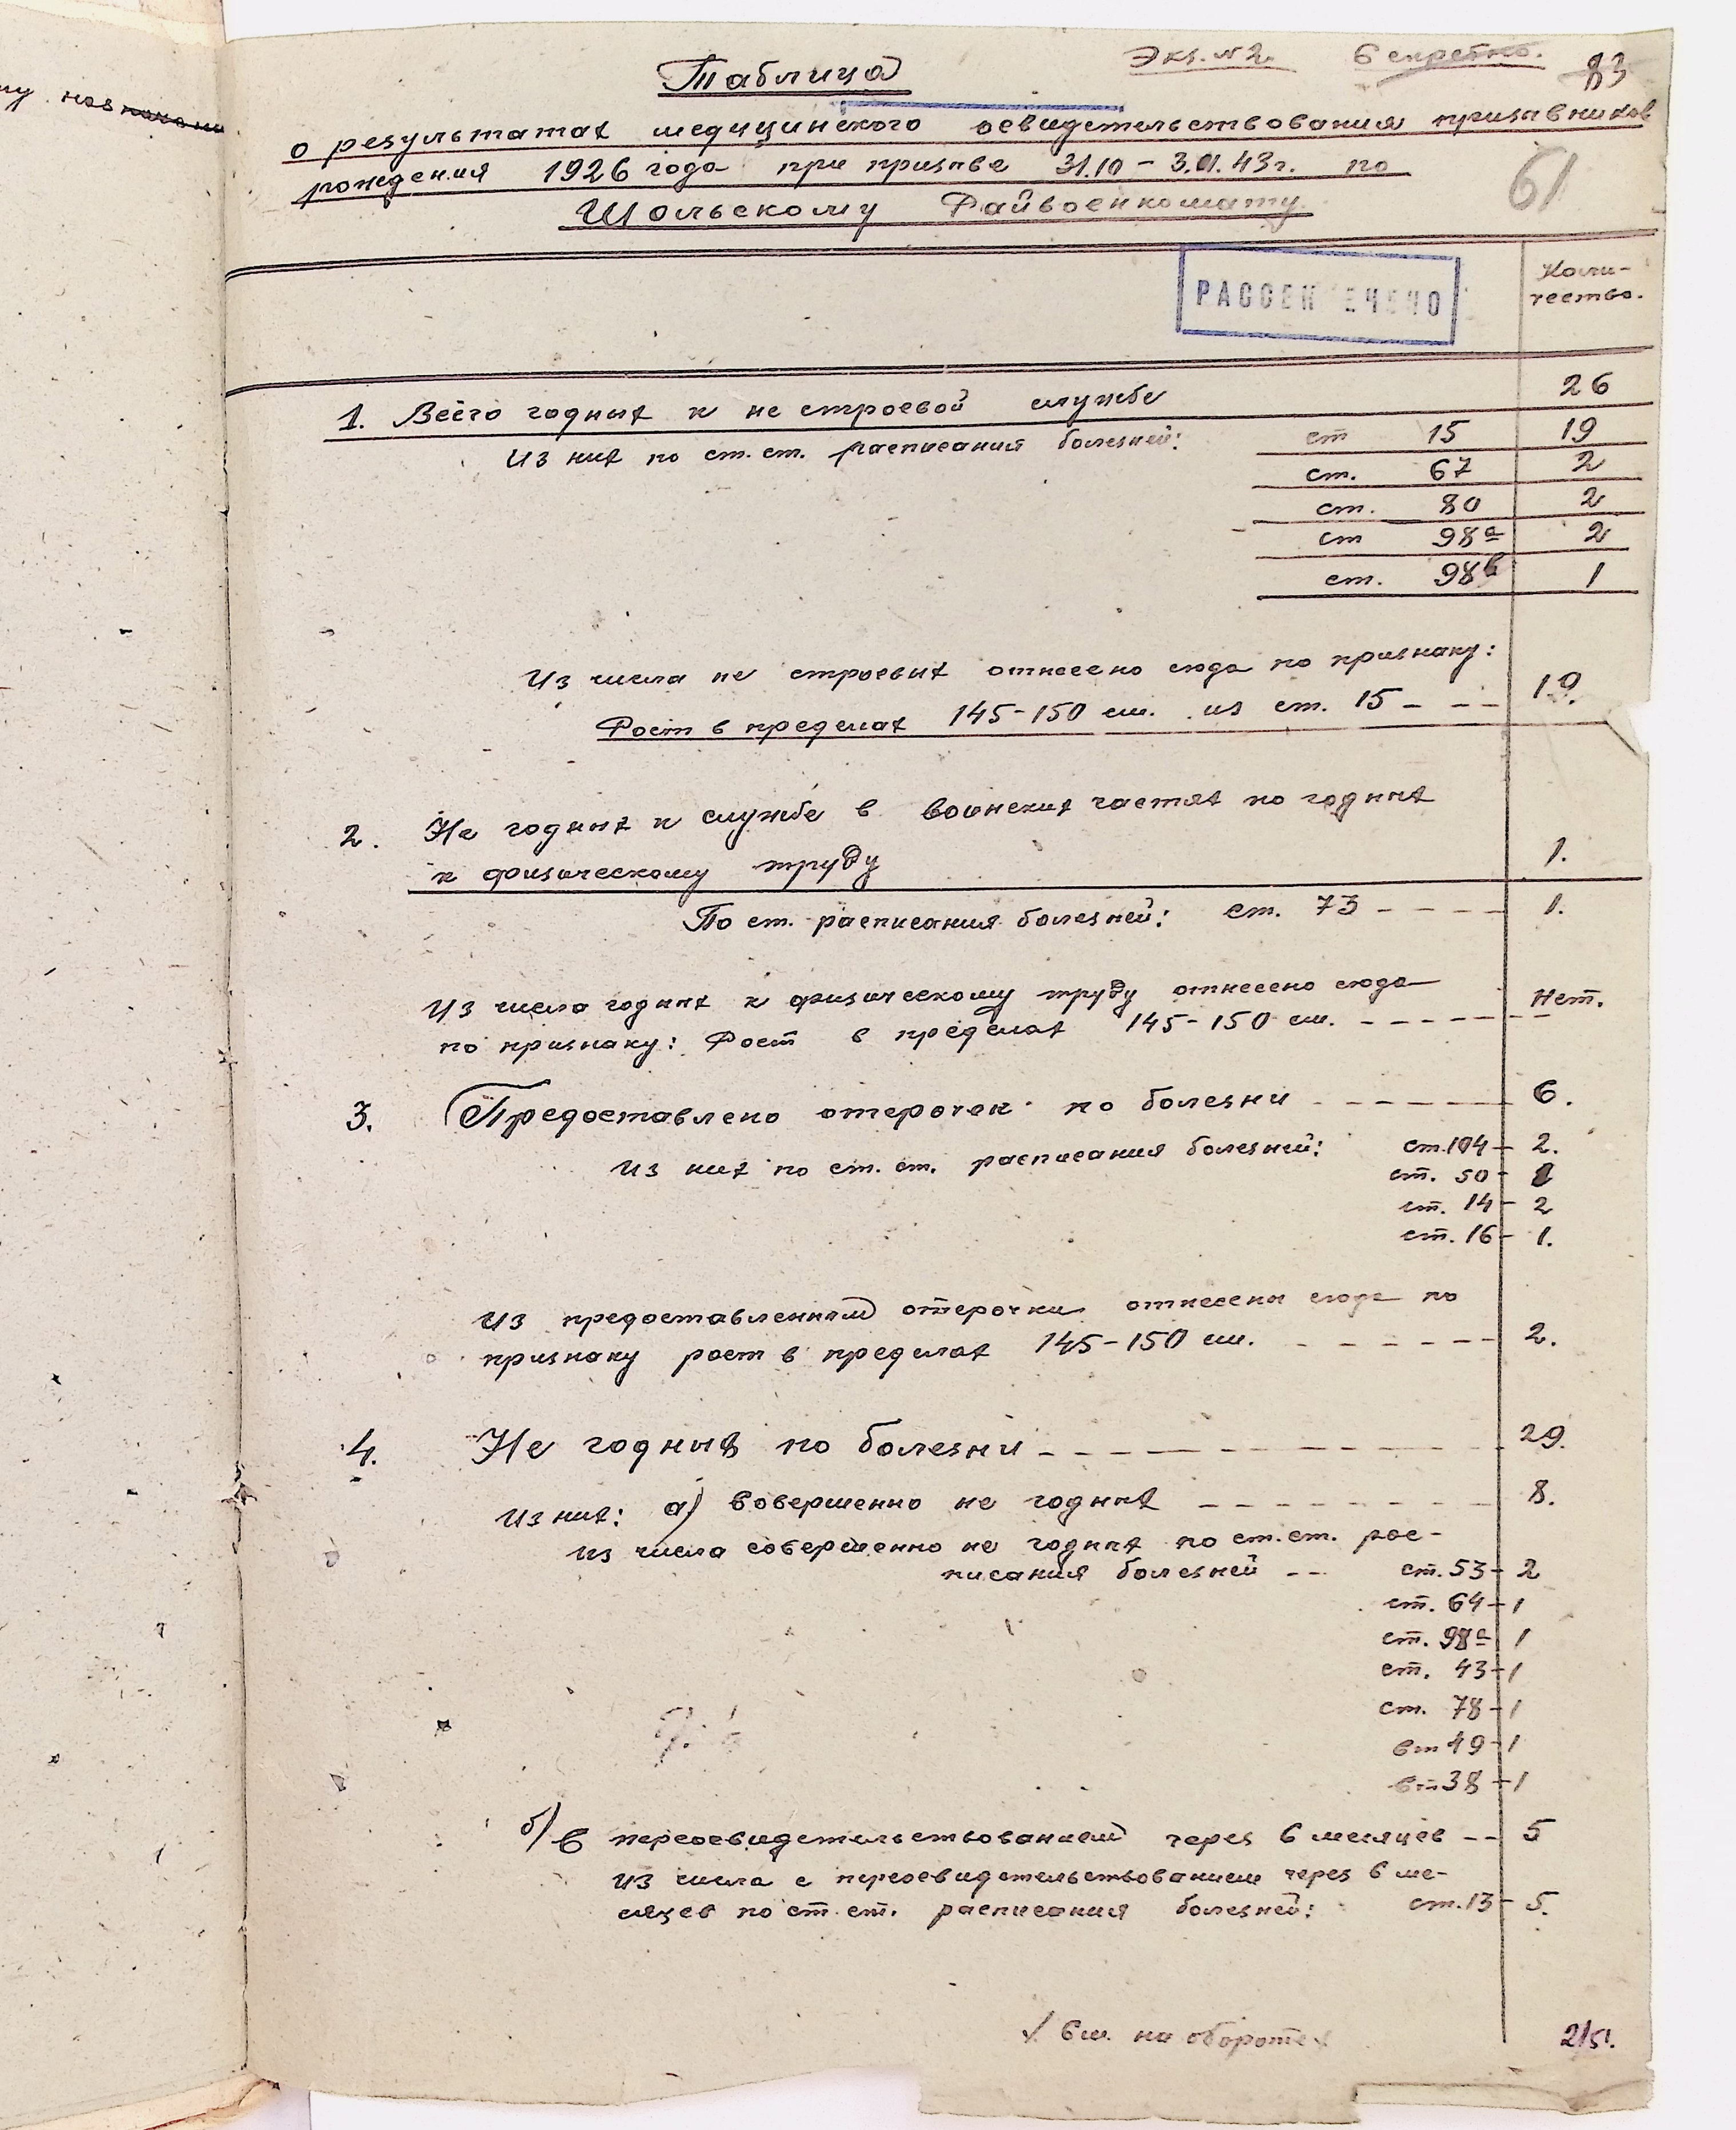 Экз. №2. Секретно. 83
Таблица
о результатах медицинского освидетельствования призывников
рождения 1926 года при призыве 31.10 - 3.XI.43г. по
61
Шольскому Райвоенкомату
РАССЕК ЕЧЕНО
Коли-
чество.
1. Всего годных к не строевой службе 26
Из них по ст. ст. расписания болезней: ст 15 19
ст. 67 2
ст. 80 2
ст 98а 2
ст. 98в 1
Из числа не строевых отнесено сюда по признаку:
Рост в пределах 145-150 см. из ст. 15 - - - 19.
2. Не годных к службе в воинских частях но годных
к физическому труду 1.
По ст. расписания болезней: ст. 73 - - - - 1.
Из числа годных к физическому труду отнесено сюда
по признаку: Рост в пределах 145-150 см. - - - - - - - Нет.
3. Предоставлено отсрочек по болезни - - - - - - 6.
Из них по ст. ст. расписания болезней: ст. 104 - 2.
ст. 50 - 1
ст. 14 - 2
ст. 16 - 1.
Из предоставленных отсрочки отнесены сюда по
признаку рост в пределах 145-150 см. - - - - - - 2.
4. Не годных по болезни - - - - - - - - - 29.
Из них: а) Совершенно не годных - - - - - - - - 8.
из числа совершенно не годных по ст. ст. рас-
писания болезней - - ст. 53 - 2
ст. 64 - 1
ст. 98а 1
ст. 43 - 1
ст. 78 - 1
ст 49 - 1
ст 38 - 1
б) С переосвидетельствованием через 6 месяцев - - 5
из числа с переосвидетельствованием через 6 ме-
сяцев по ст. ст. расписания болезней: ст. 13 - 5.
См. на обороте